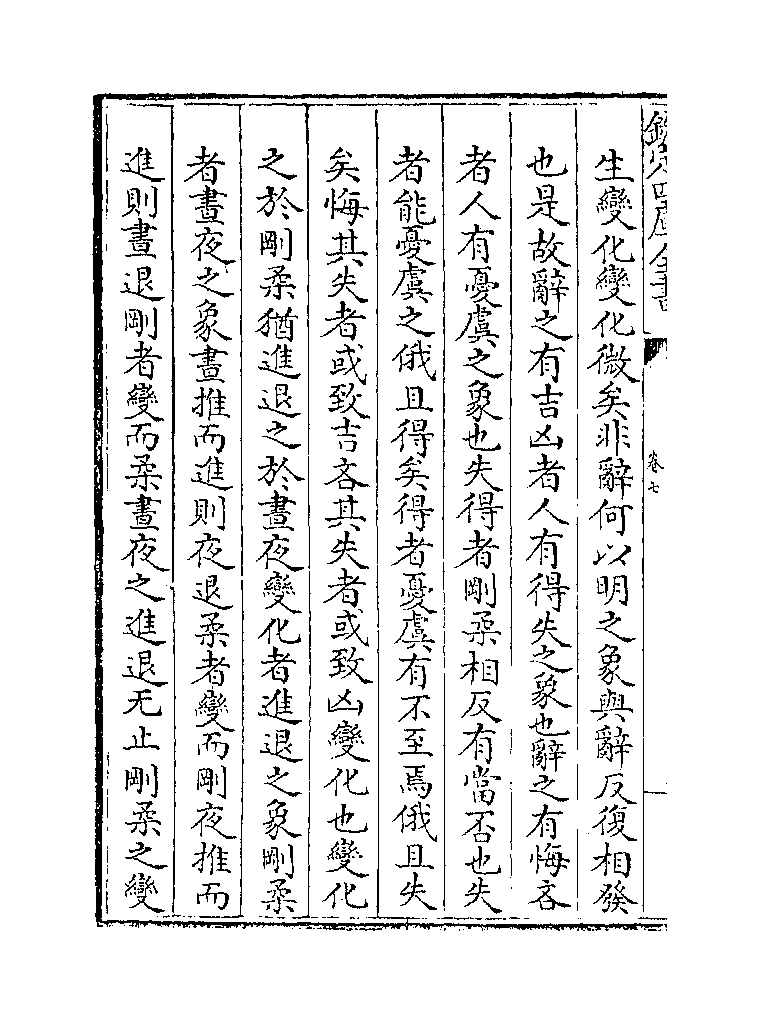 欽定四庫全書
卷七
生變化變化微矣非辭何以明之象與辭反復相發
也是故辭之有吉凶者人有得失之象也辭之有悔吝
者人有憂虞之象也失得者剛柔相反有當否也失
者能憂虞之俄且得矣得者憂虞有不至焉俄且失
矣悔其失者或致吉吝其失者或致凶變化也變化
之於剛柔猶進退之於晝夜變化者進退之象剛柔
者晝夜之象晝推而進則夜退柔者變而剛夜推而
進則晝退剛者變而柔晝夜之進退无止剛柔之變